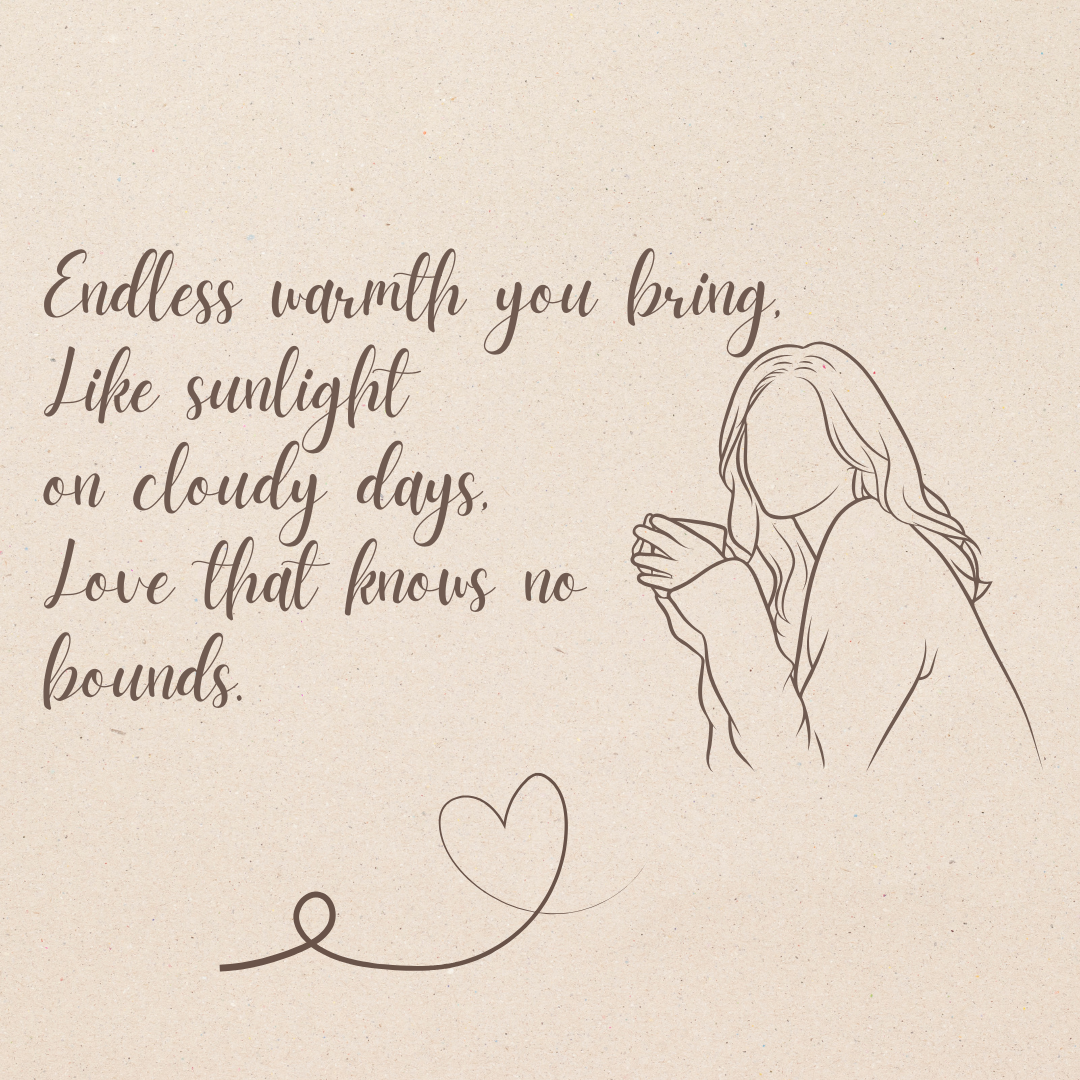 Endless warmth you bring,
Like sunlight
on cloudy days,
Love that knows no
bounds.